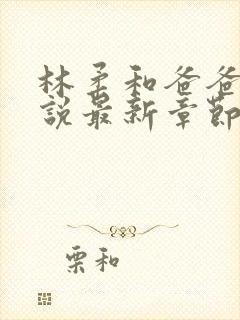 林柔和爸爸
說最新章節
栗和